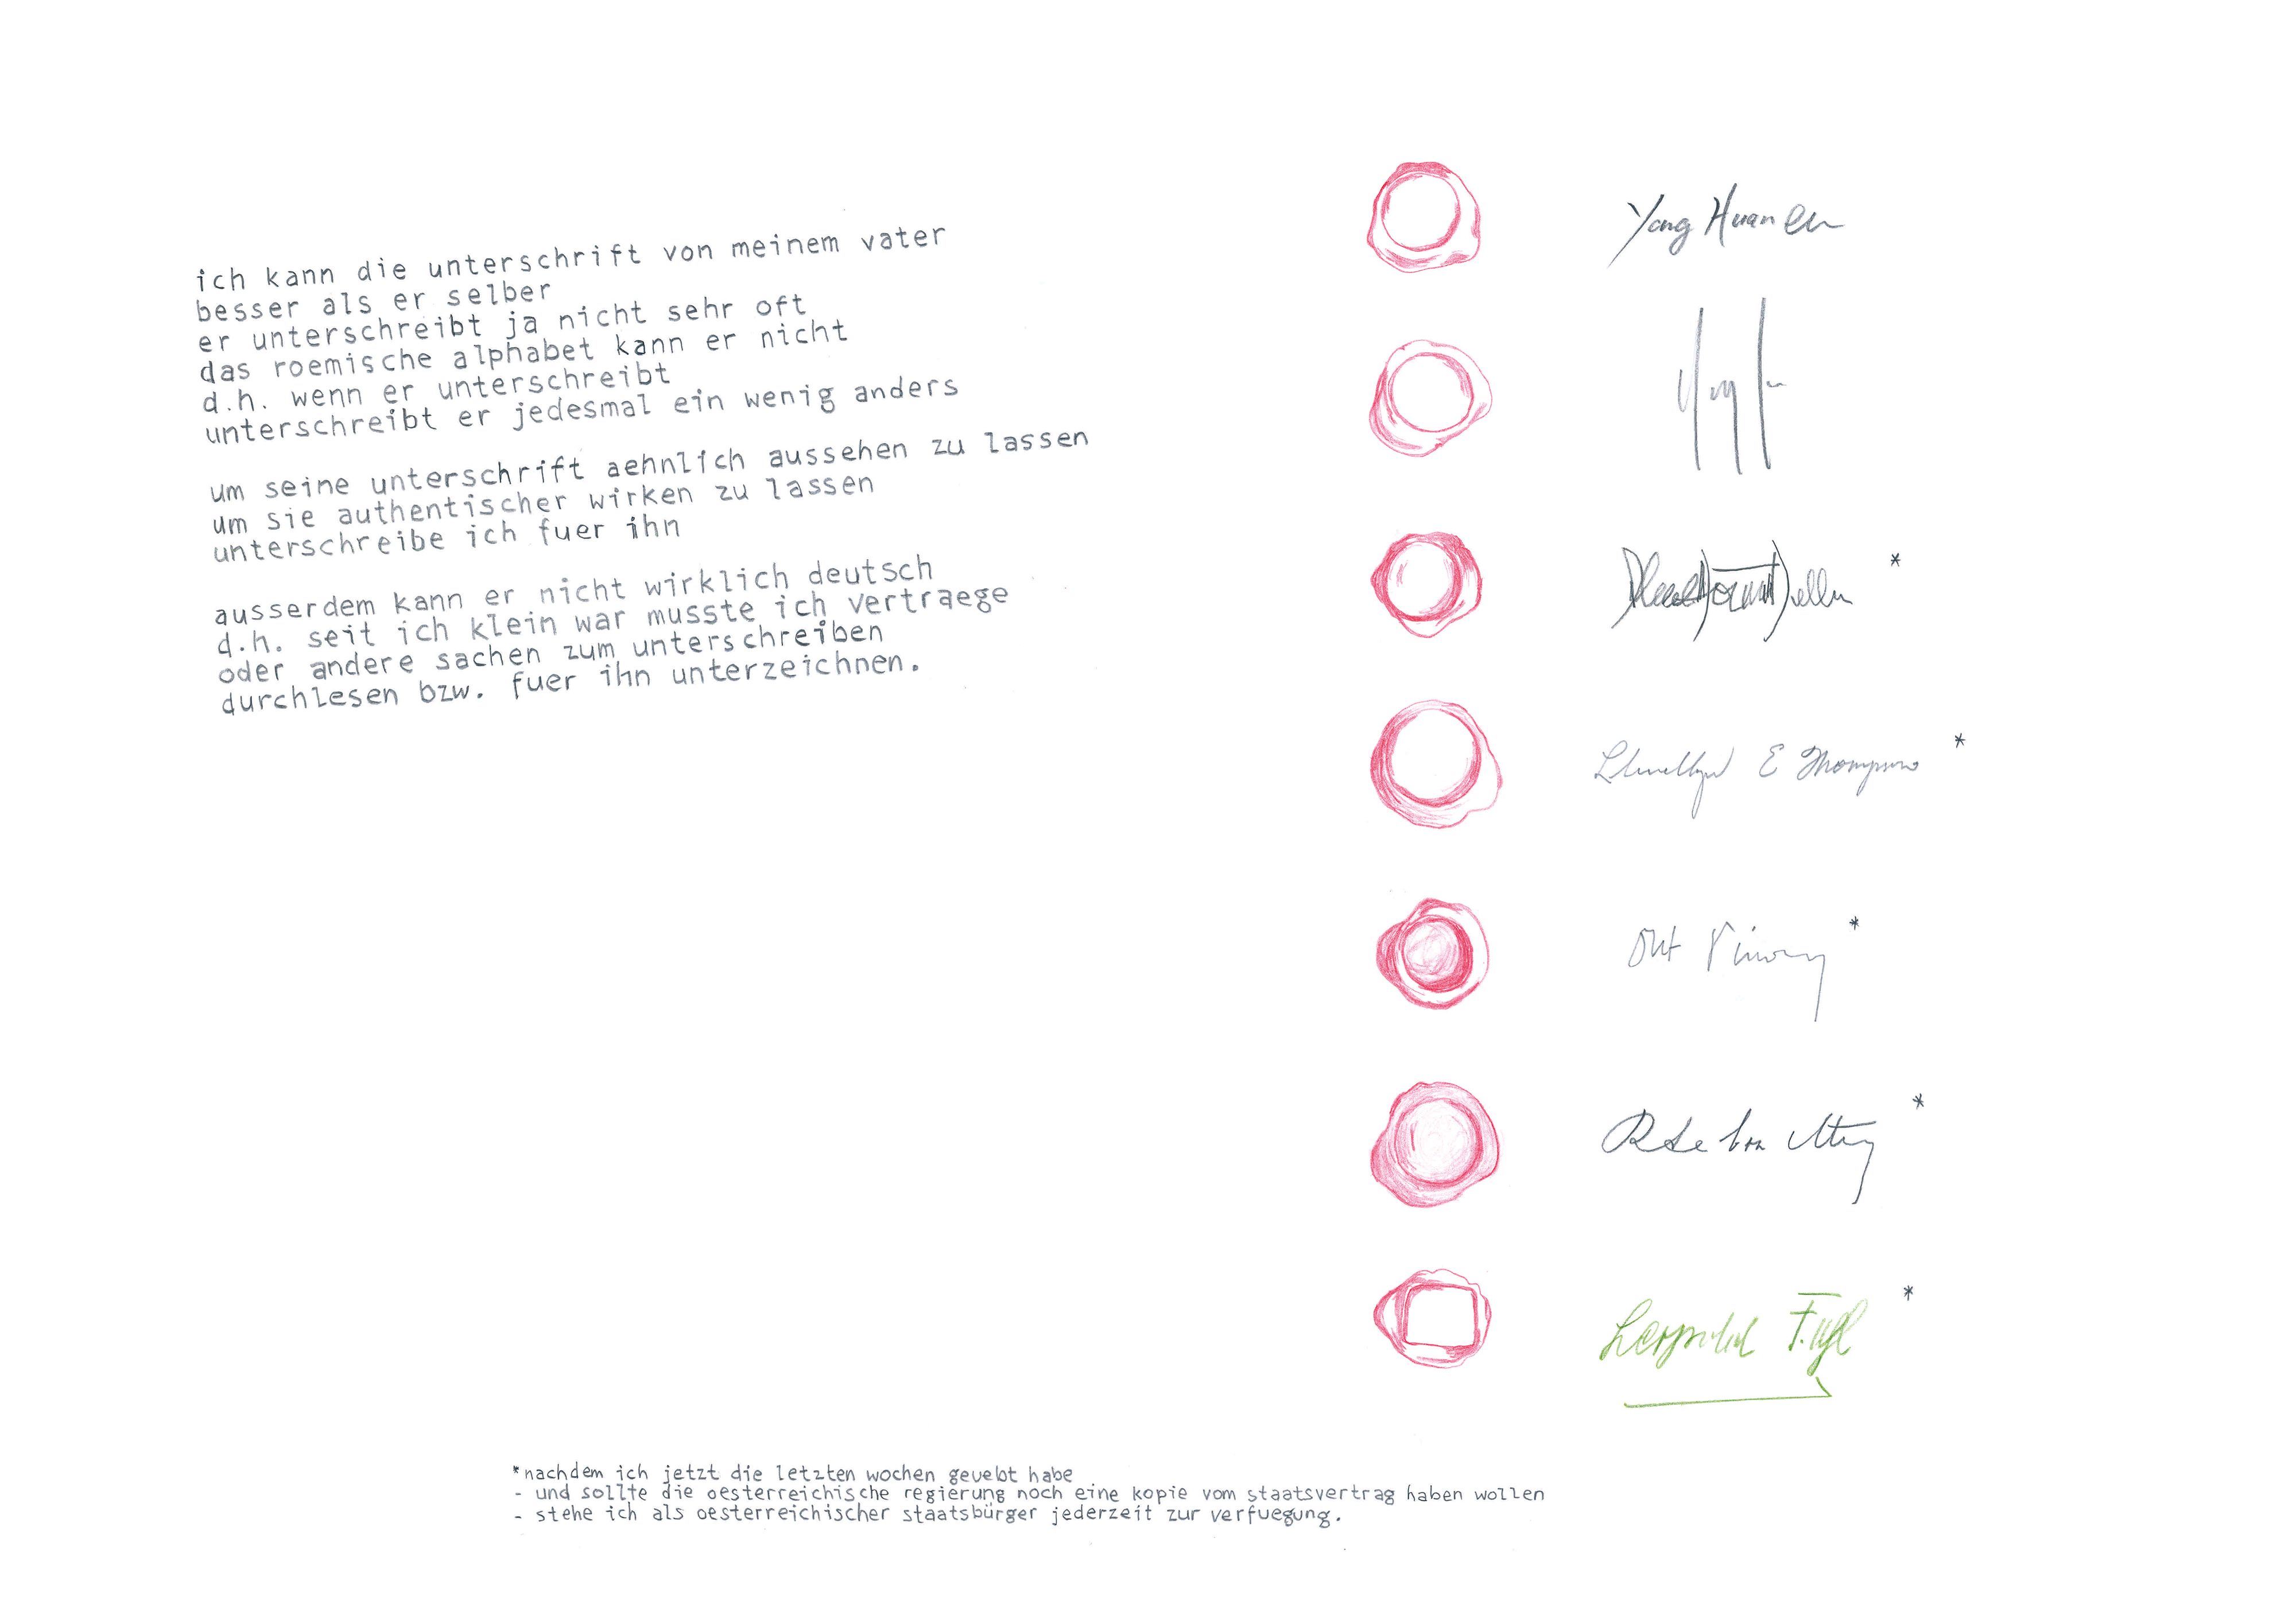 ich kann die unterschrift von meinem vater
besser als er selber
er unterschreibt ja nicht sehr oft
das roemische alphabet kann er nicht
d.h. wenn er unterschreibt
unterschreibt er jedesmal ein wenig anders
um seine unterschrift aehnlich aussehen zu lassen
um sie authentischer wirken zu lassen
unterschreibe ich fuer ihn
ausserdem kann er nicht wirklich deutsch
d.h. seit ich klein war musste ich vertraege
oder andere sachen zum unterschreiben
durchlesen bzw. fuer ihn unterzeichnen.
Yong Huan
*
Llewellyn E Thompson *
*
*
Leopold Figl *
*nachdem ich jetzt die letzten wochen geuebt habe
- und sollte die oesterreichische regierung noch eine kopie vom staatsvertrag haben wollen
- stehe ich als oesterreichischer staatsbürger jederzeit zur verfuegung.